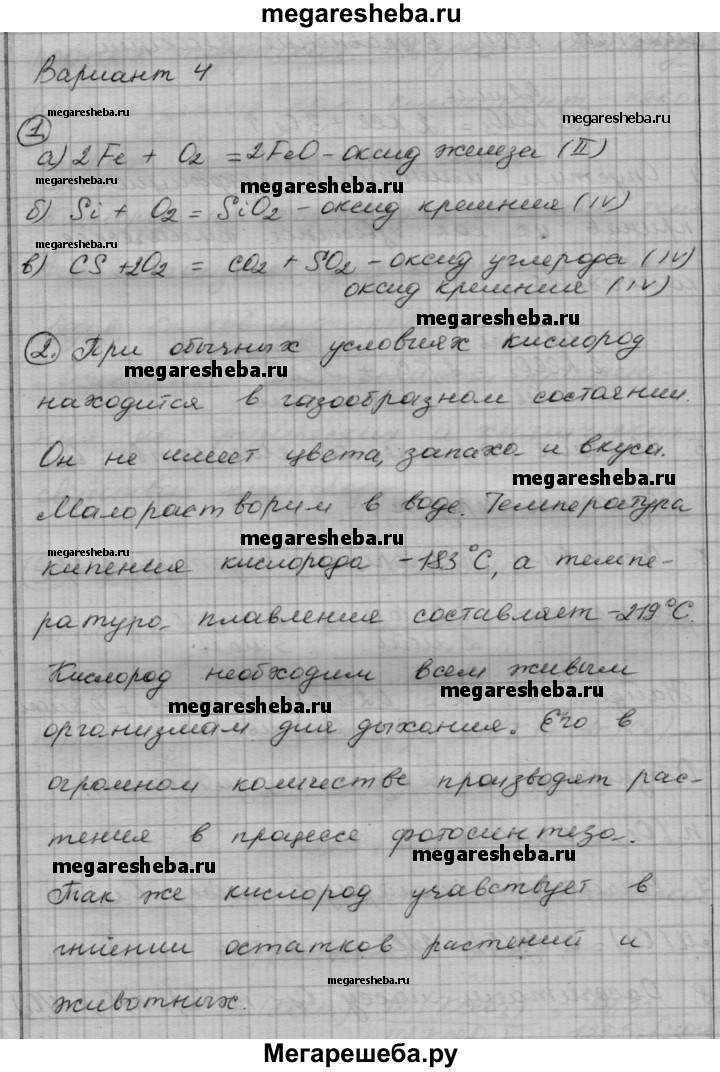 megaresheba.ru
Вариант 4
megaresheba.ru
megaresheba.ru
1.
а) 2Fe + O2 = 2FeO - оксид железа (II)
б) Si + O2 = SiO2 - оксид кремния (IV)
в) CS + 2O2 = CO2 + SO2 - оксид углерода (IV)
оксид кремния (IV)
megaresheba.ru
2. При обычных условиях кислород
megaresheba.ru
находится в газообразном состоянии.
Он не имеет цвета, запаха и вкуса.
megaresheba.ru
Малорастворим в воде. Температура
megaresheba.ru
кипения кислорода -183°C, а темпе-
ратура плавления составляет -219°C.
Кислород необходим всем живым
megaresheba.ru
megaresheba.ru
организмам для дыхания. Его в
огромном количестве производят рас-
тения в процессе фотосинтеза.
megaresheba.ru
megaresheba.ru
Так же кислород учавствует в
гниении остатков растений и
megaresheba.ru
животных.
Мегарешеба.ру